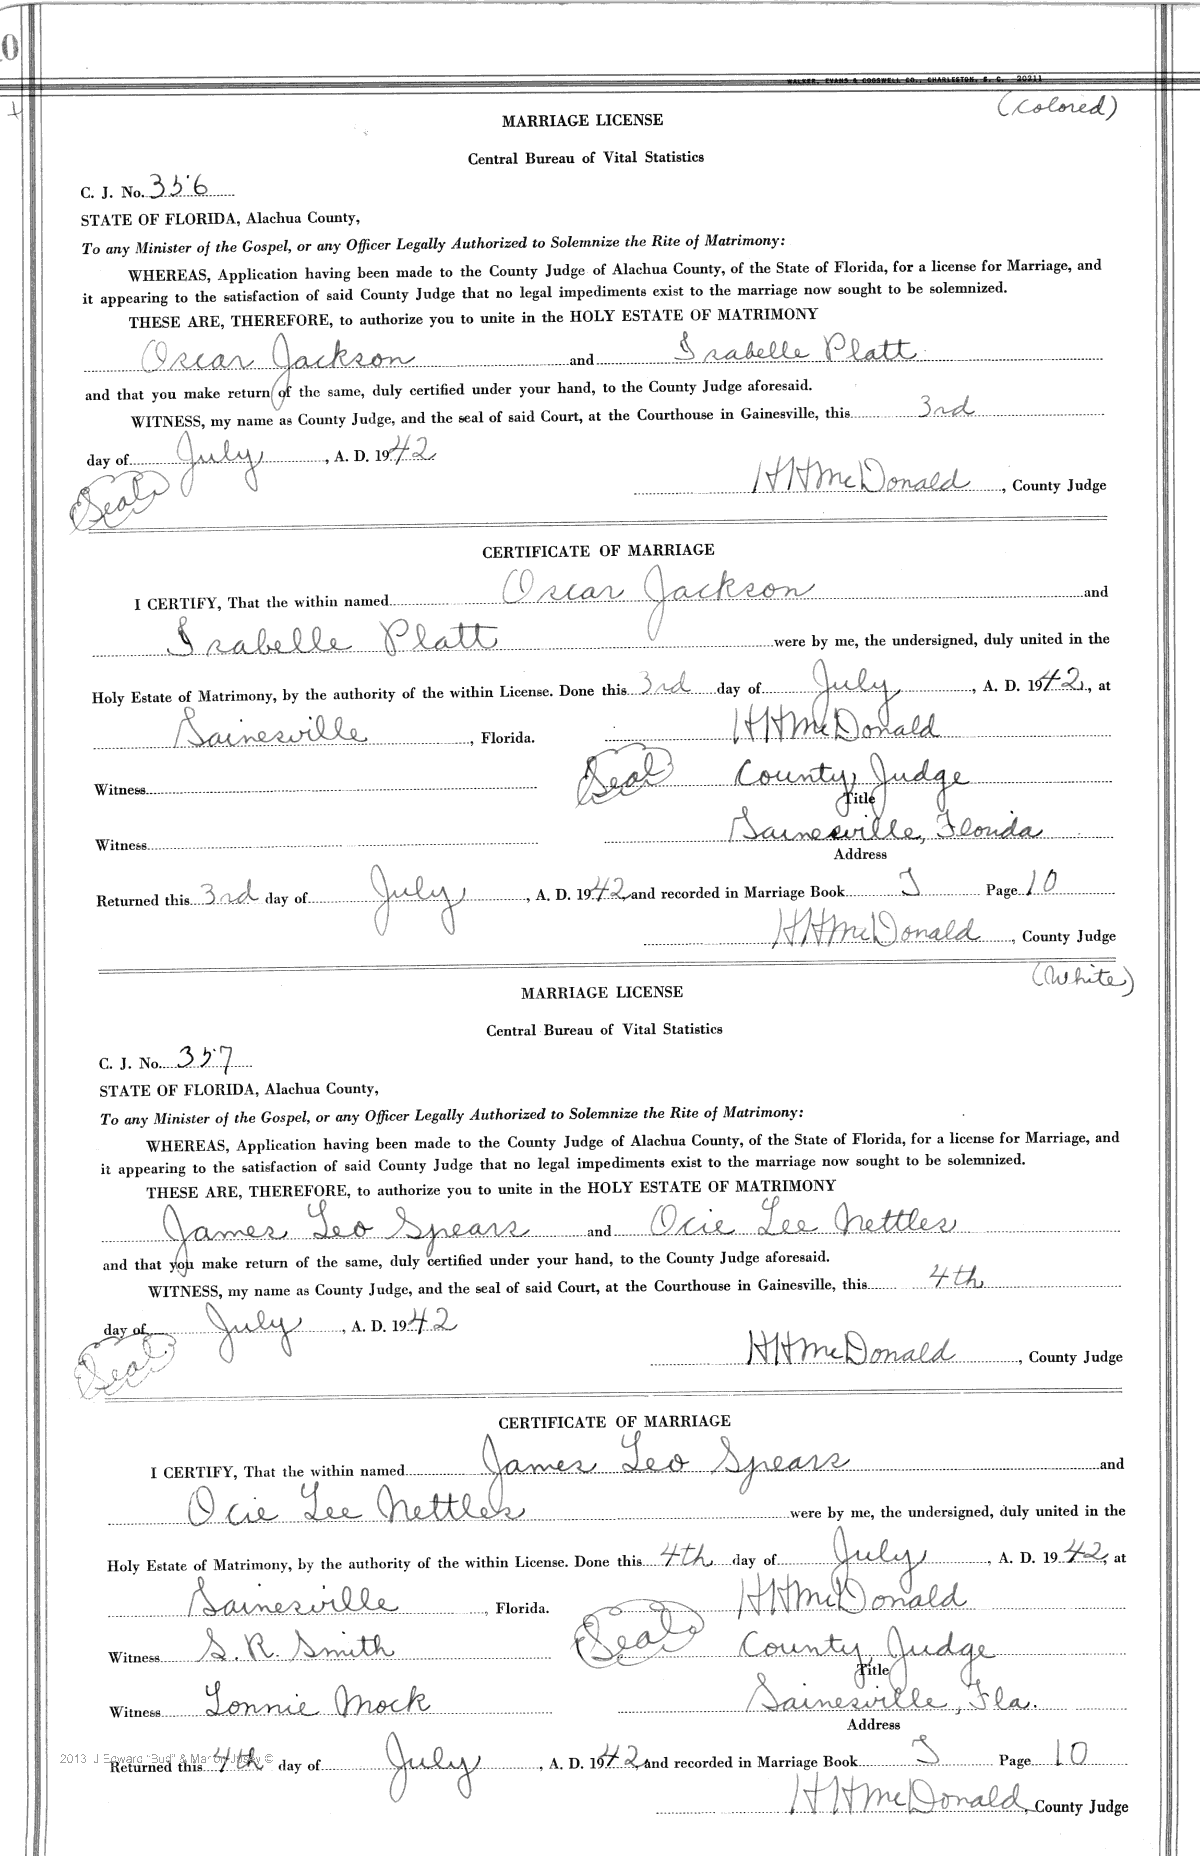 10
WALKER, EVANS & COGSWELL CO., CHARLESTON, S. C. 20211
(Colored)
MARRIAGE LICENSE
Central Bureau of Vital Statistics
C. J. No. 356
STATE OF FLORIDA, Alachua County,
To any Minister of the Gospel, or any Officer Legally Authorized to Solemnize the Rite of Matrimony:
WHEREAS, Application having been made to the County Judge of Alachua County, of the State of Florida, for a license for Marriage, and
it appearing to the satisfaction of said County Judge that no legal impediments exist to the marriage now sought to be solemnized.
THESE ARE, THEREFORE, to authorize you to unite in the HOLY ESTATE OF MATRIMONY
Oscar Jackson and Isabelle Platt
and that you make return of the same, duly certified under your hand, to the County Judge aforesaid.
WITNESS, my name as County Judge, and the seal of said Court, at the Courthouse in Gainesville, this 3rd
day of July, A. D. 1942
(Seal) HHMcDonald, County Judge
CERTIFICATE OF MARRIAGE
I CERTIFY, That the within named Oscar Jackson and
Isabelle Platt were by me, the undersigned, duly united in the
Holy Estate of Matrimony, by the authority of the within License. Done this 3rd day of July, A. D. 1942, at
Gainesville, Florida. HHMcDonald
Witness (Seal) County Judge
Title
Witness Gainesville, Florida
Address
Returned this 3rd day of July, A. D. 1942 and recorded in Marriage Book J Page 10
HHMcDonald, County Judge
(White)
MARRIAGE LICENSE
Central Bureau of Vital Statistics
C. J. No. 357
STATE OF FLORIDA, Alachua County,
To any Minister of the Gospel, or any Officer Legally Authorized to Solemnize the Rite of Matrimony:
WHEREAS, Application having been made to the County Judge of Alachua County, of the State of Florida, for a license for Marriage, and
it appearing to the satisfaction of said County Judge that no legal impediments exist to the marriage now sought to be solemnized.
THESE ARE, THEREFORE, to authorize you to unite in the HOLY ESTATE OF MATRIMONY
James Leo Spears and Ocie Lee Nettles
and that you make return of the same, duly certified under your hand, to the County Judge aforesaid.
WITNESS, my name as County Judge, and the seal of said Court, at the Courthouse in Gainesville, this 4th
day of July, A. D. 1942
(Seal) HHMcDonald, County Judge
CERTIFICATE OF MARRIAGE
I CERTIFY, That the within named James Leo Spears and
Ocie Lee Nettles were by me, the undersigned, duly united in the
Holy Estate of Matrimony, by the authority of the within License. Done this 4th day of July, A. D. 1942, at
Gainesville, Florida. HHMcDonald
Witness S. R. Smith (Seal) County Judge
Title
Witness Lonnie Mock Gainesville, Fla.
Address
2013 J Edward "Bud" & ©
Returned this 4th day of July, A. D. 1942 and recorded in Marriage Book J Page 10
HHMcDonald, County Judge